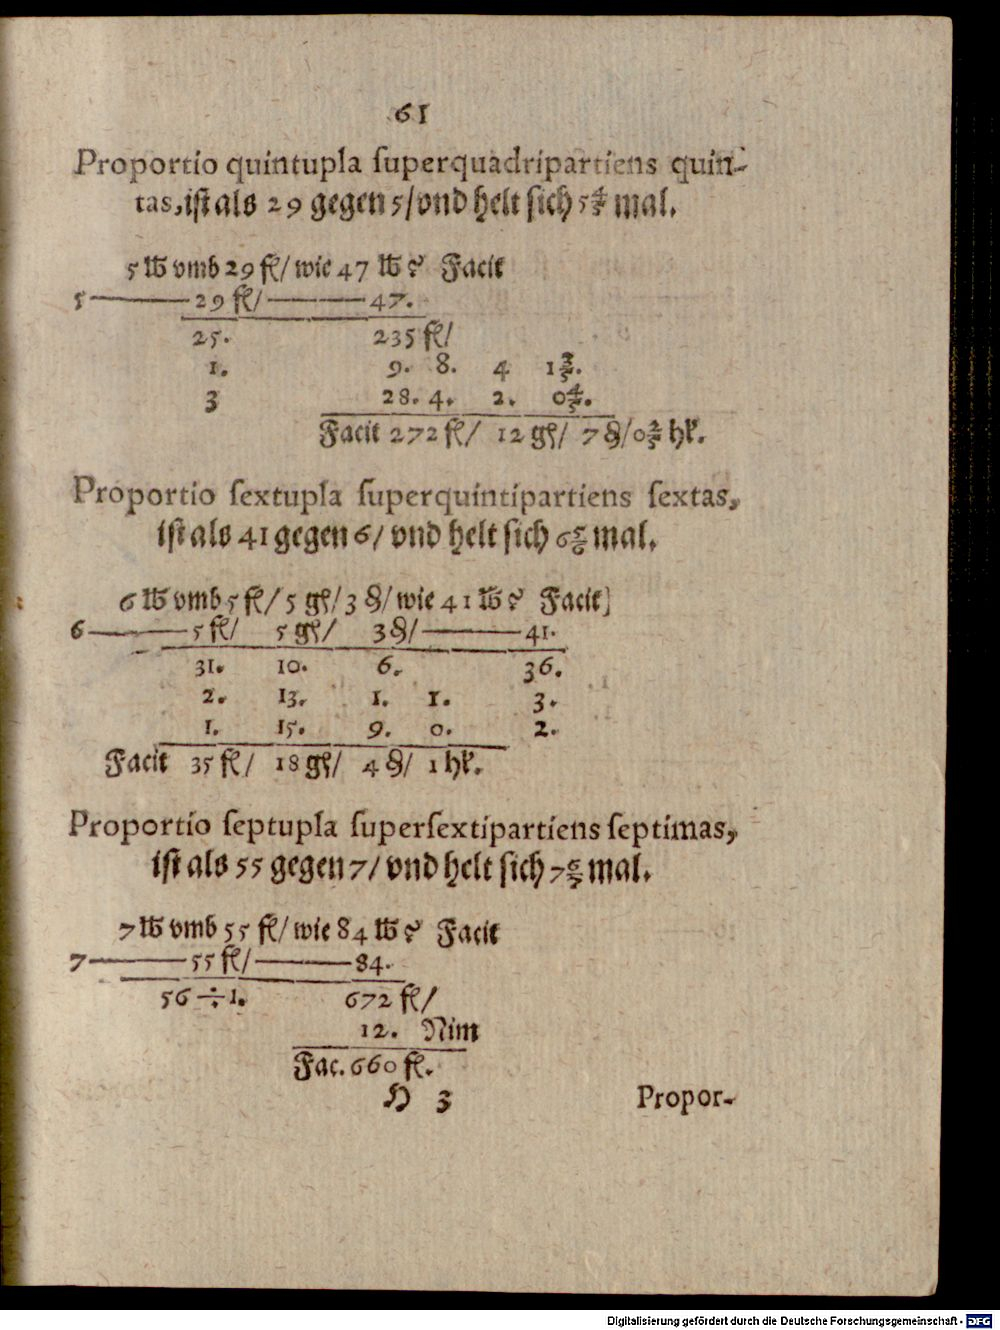 61
Proportio quintupla ſuperquadripartiens quin-
tas, iſt als 29 gegen 5/ vnd helt ſich 5 4/5 mal.
5 ℔ vmb 29 fl/ wie 47 ℔? Facit
5 ——— 29 fl/ ——— 47.
25. 235 fl/
1. 9. 8. 4 1 3/5.
3 28. 4. 2. 0 4/5.
Facit 272 fl/ 12 gſ/ 7 ₰/ 0 2/5 hl.
Proportio ſextupla ſuperquintipartiens ſextas,
iſt als 41 gegen 6/ vnd helt ſich 6 5/6 mal.
6 ℔ vmb 5 fl/ 5 gſ/ 3 ₰/ wie 41 ℔? Facit]
6 ——— 5 fl/ 5 gſ/ 3 ₰/ ——— 41.
31. 10. 6. 36.
2. 13. 1. 1. 3.
1. 15. 9. 0. 2.
Facit 35 fl/ 18 gſ/ 4 ₰/ 1 hl.
Proportio ſeptupla ſuperſextipartiens ſeptimas,
iſt als 55 gegen 7/ vnd helt ſich 7 6/7 mal.
7 ℔ vmb 55 fl/ wie 84 ℔? Facit
7 ——— 55 fl/ ——— 84.
56 ÷ 1. 672 fl/
12. Nim
Fac. 660 fl.
H 3 Propor-
Digitalisierung gefördert durch die Deutsche Forschungsgemeinschaft - DFG